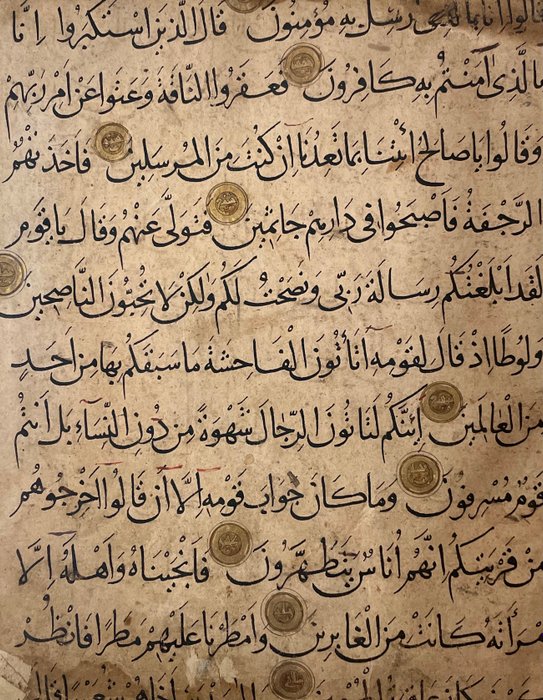 قالوا انا بما ارسل به مؤمنون قال الذين استكبروا انا
بالذى اٰمنتُم به كافرون فعقروا الناقة وعتوا عن امر ربّهم
وقالوا ياصالح ائتنا بما تعدنآ ان كنت من المرسلين فاخذتهم
الرّجفةُ فاصبحوا فى دارهم جاثمين فتولّى عنهُم وقال ياقوم
لقد ابلغتُكم رسالة ربّى ونصحتُ لكُم ولكن لا تحبّون النّاصحين
ولوطًا اذ قال لقومه اتأتون الفاحشة ما سبقكُم بها من احدٍ
من العالمين ائنّكُم لتاتون الرّجال شهوةً من دون النّسآء بل انتُم
قومٌ مسرفون وما كان جواب قومه الّآ ان قالُوا اخرجوهُم
من قريتكُم انّهُم اُناسٌ يتطهّرون فانجيناه واهلهُ الّا
امرأتهُ كانت من الغابرين وامطرنا عليهم مطرًا فانظُر